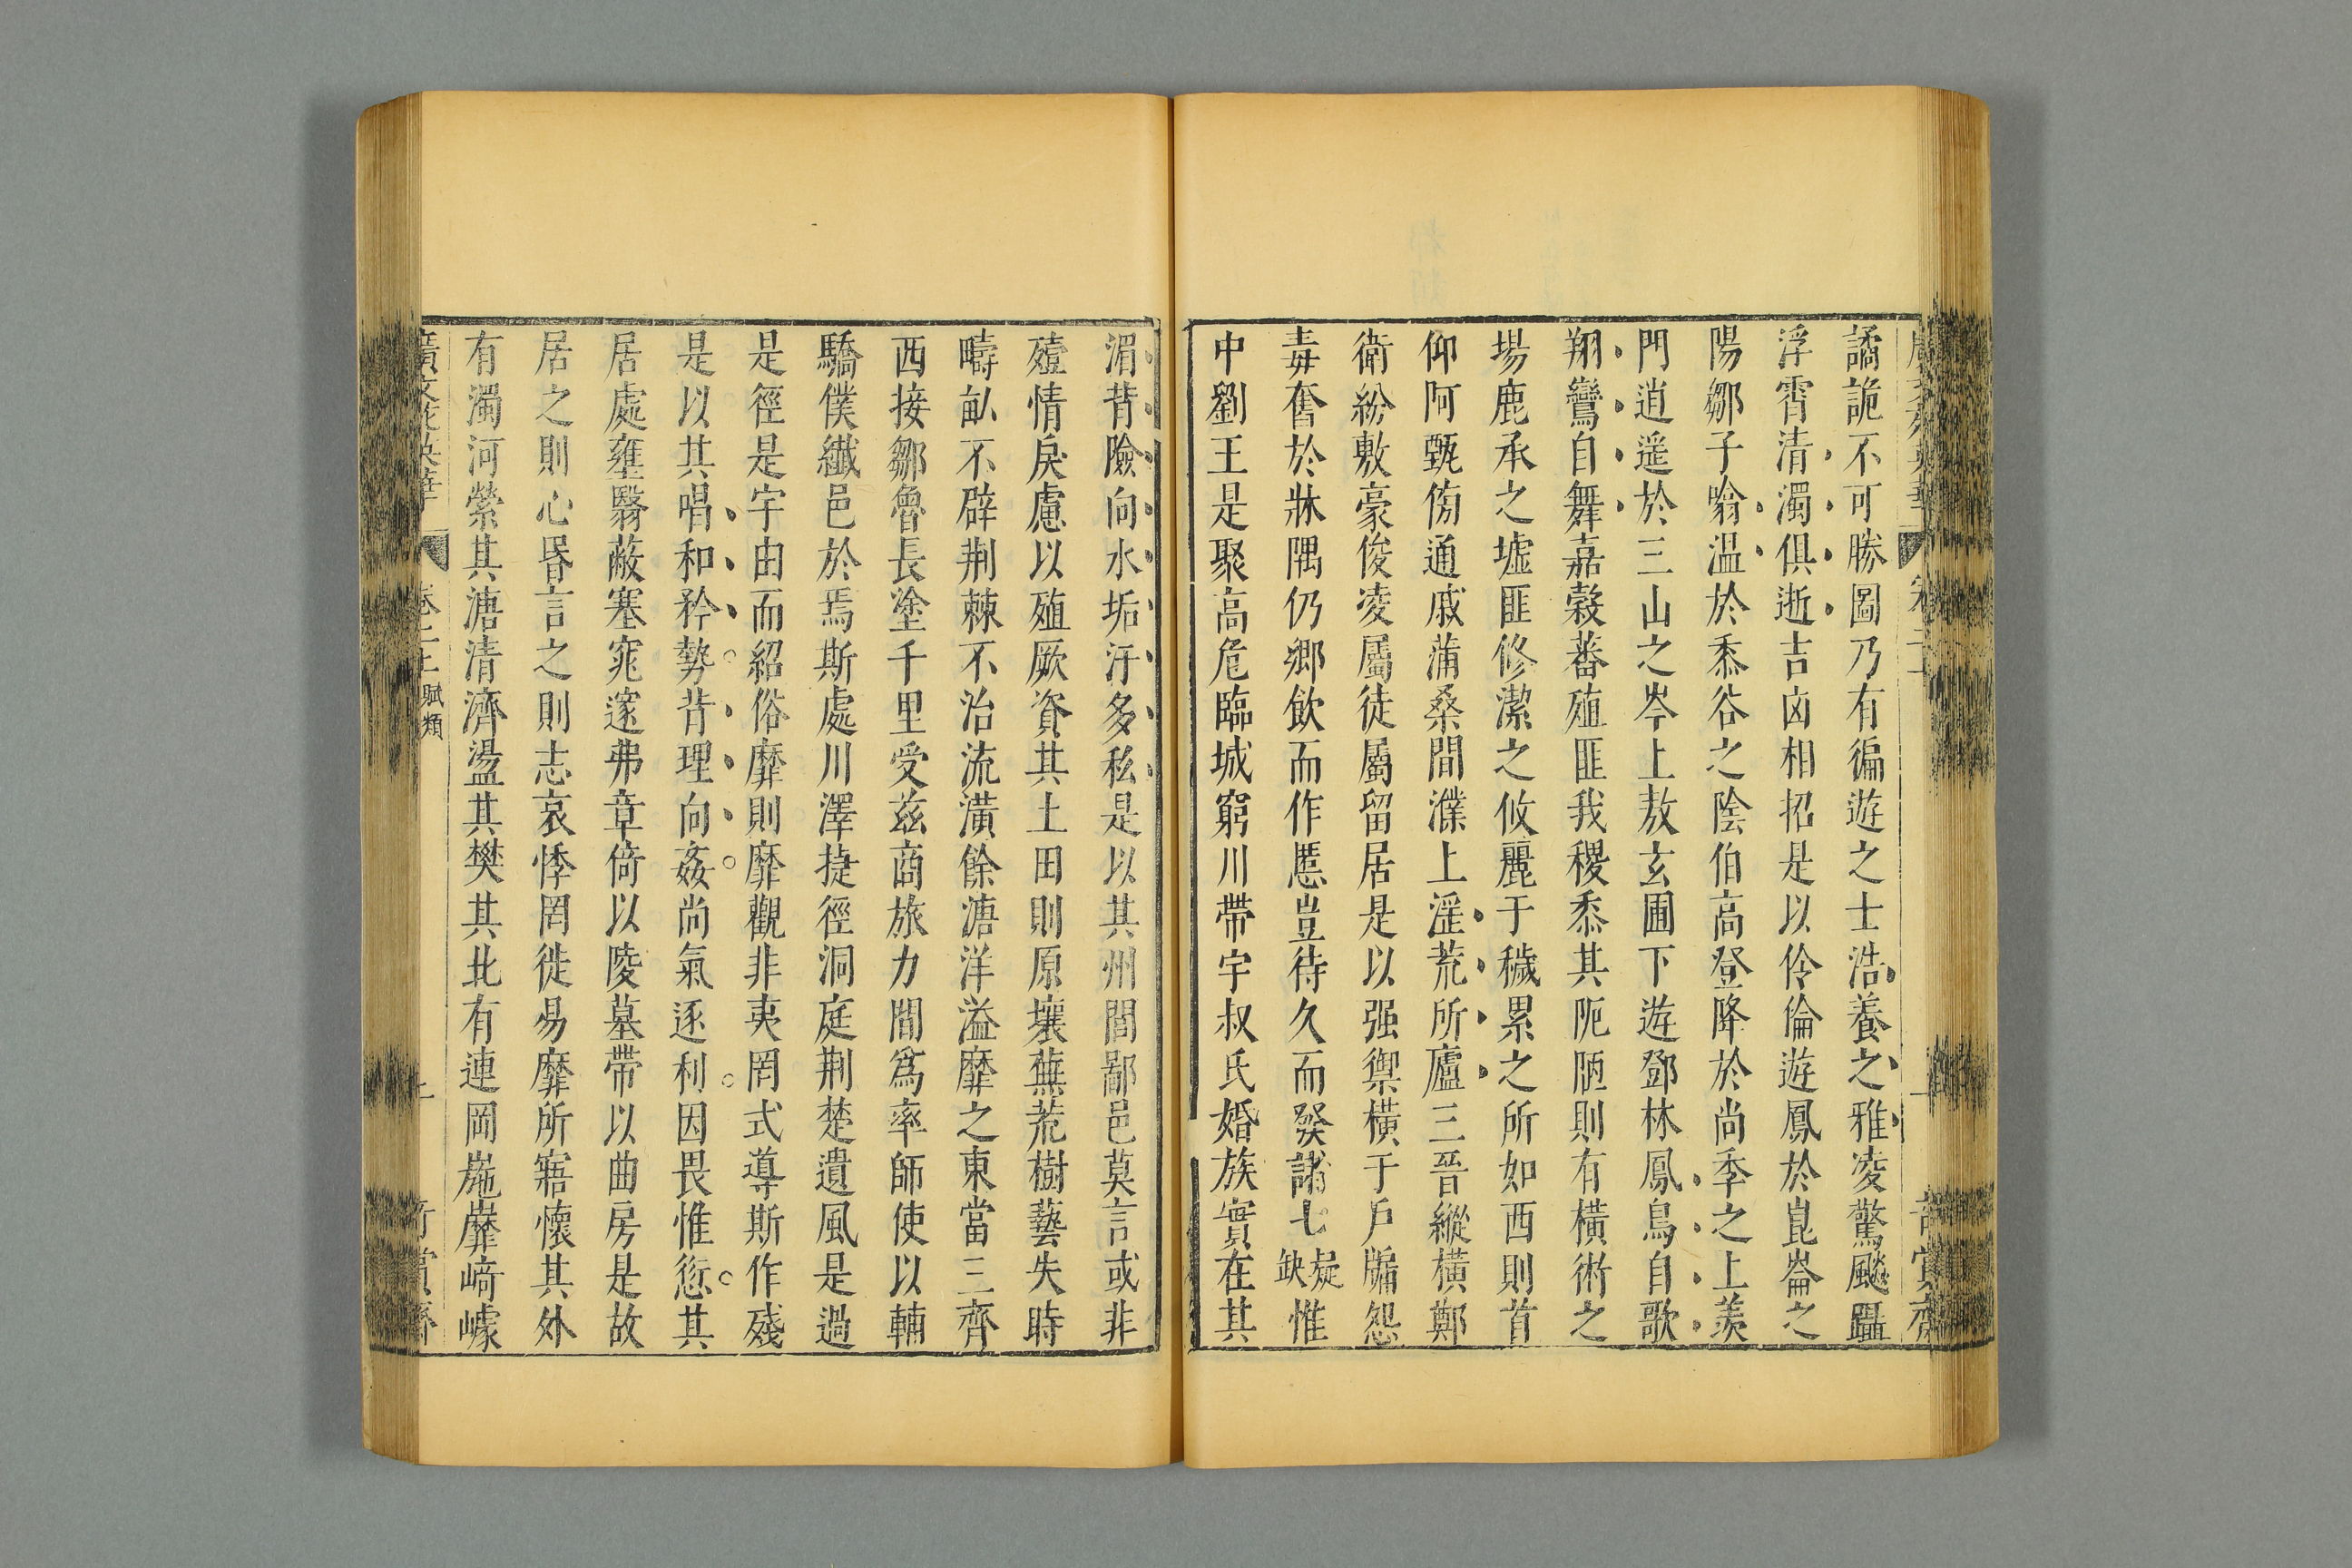 譎詭不可勝圖乃有徧遊之士浩養之雅凌驚飈躡
浮霄清濁俱逝吉凶相招是以伶倫遊鳳於崑崙之
陽鄒子噏温於黍谷之陰伯高登降於尚季之上羨
門逍遥於三山之岑上遨玄圃下遊鄧林鳳鳥自歌
翔鸞自舞嘉糓蕃殖匪我稷黍其阨陋則有横術之
場鹿承之墟匪修潔之攸麗于穢累之所如西則首
仰阿甄傍通戚蒲桑間濮上淫荒所廬三晉縱横鄭
衛紛敷豪俊凌厲徒屬留居是以强禦横于戶牖怨
毒奮於牀隅仍鄉飲而作慝豈待久而發諸七疑缺惟
中劉王是聚高危臨城窮川帶宇叔氏婚族實在其
湄背險向水垢汙多私是以其州閭鄙邑莫言或非
殪情戾慮以殖厥資其土田則原壤蕪荒樹藝失時
疇畝不辟荆棘不治流潢餘溏洋溢靡之東當三齊
西接鄒魯長塗千里受兹商旅力間爲率師使以輔
驕僕纖邑於焉斯處川澤捷徑洞庭荆楚遺風是過
是徑是宇由而紹俗靡則靡觀非夷罔式導斯作殘
是以其唱和矜勢背理向姦尚氣逐利因畏惟愆其
居處壅翳蔽塞窕邃弗章倚以陵墓帶以曲房是故
居之則心昬言之則志哀悸罔徙易靡所寤懷其外
有濁河縈其溏清濟盪其樊其北有連岡崺靡崎㠊
廣文苑英華 卷二上 賦類